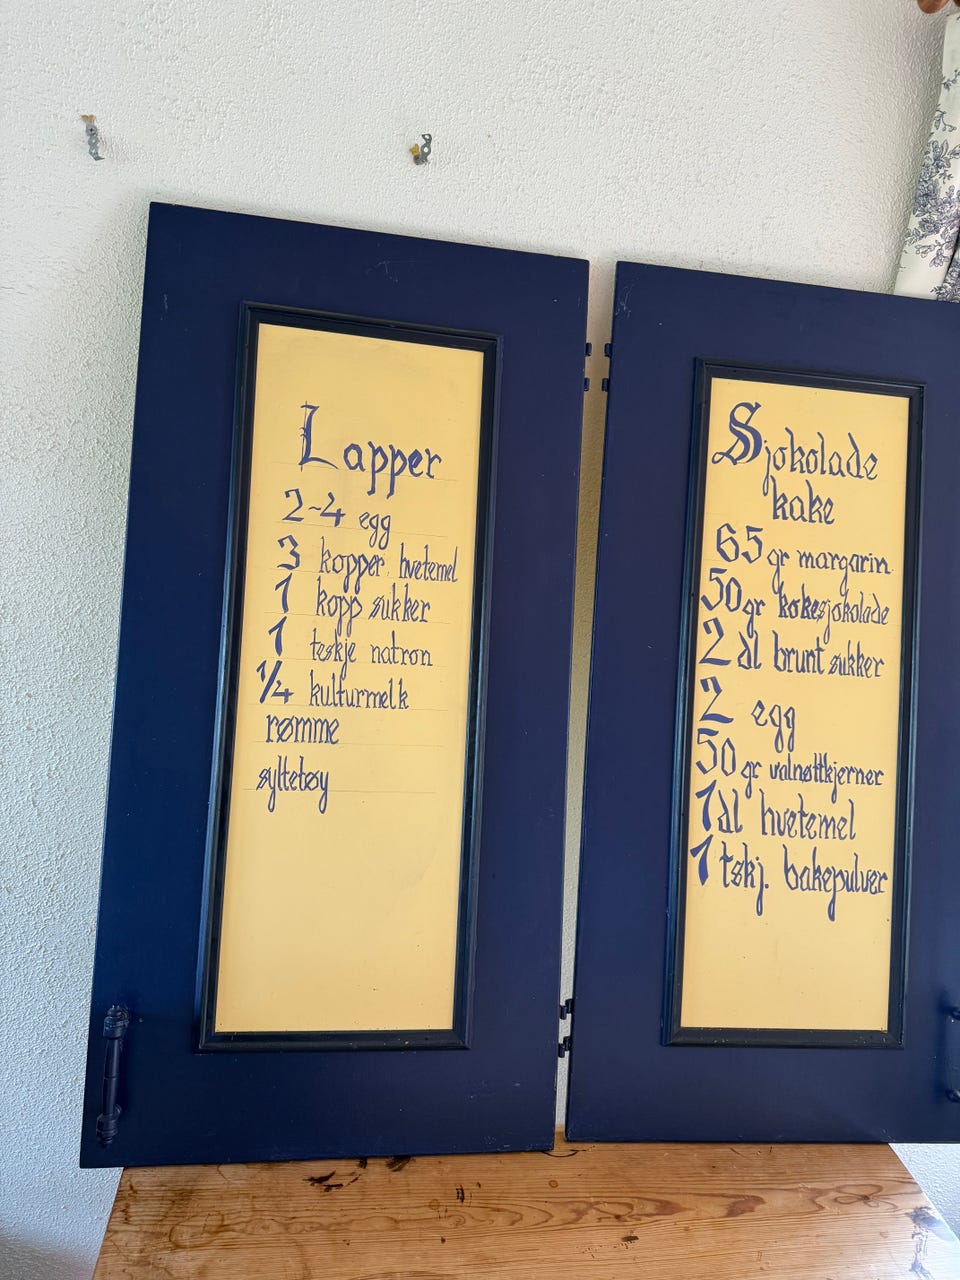 Lapper
2-4 egg
3 kopper hvetemel
1 kopp sukker
1 teskje natron
1/4 kulturmelk
rømme
syltetøy
Sjokolade
kake
65 gr margarin
50gr kokesjokolade
2 dl brunt sukker
2 egg
50 gr valnøttkjerner
1dl hvetemel
1 tskj. bakepulver